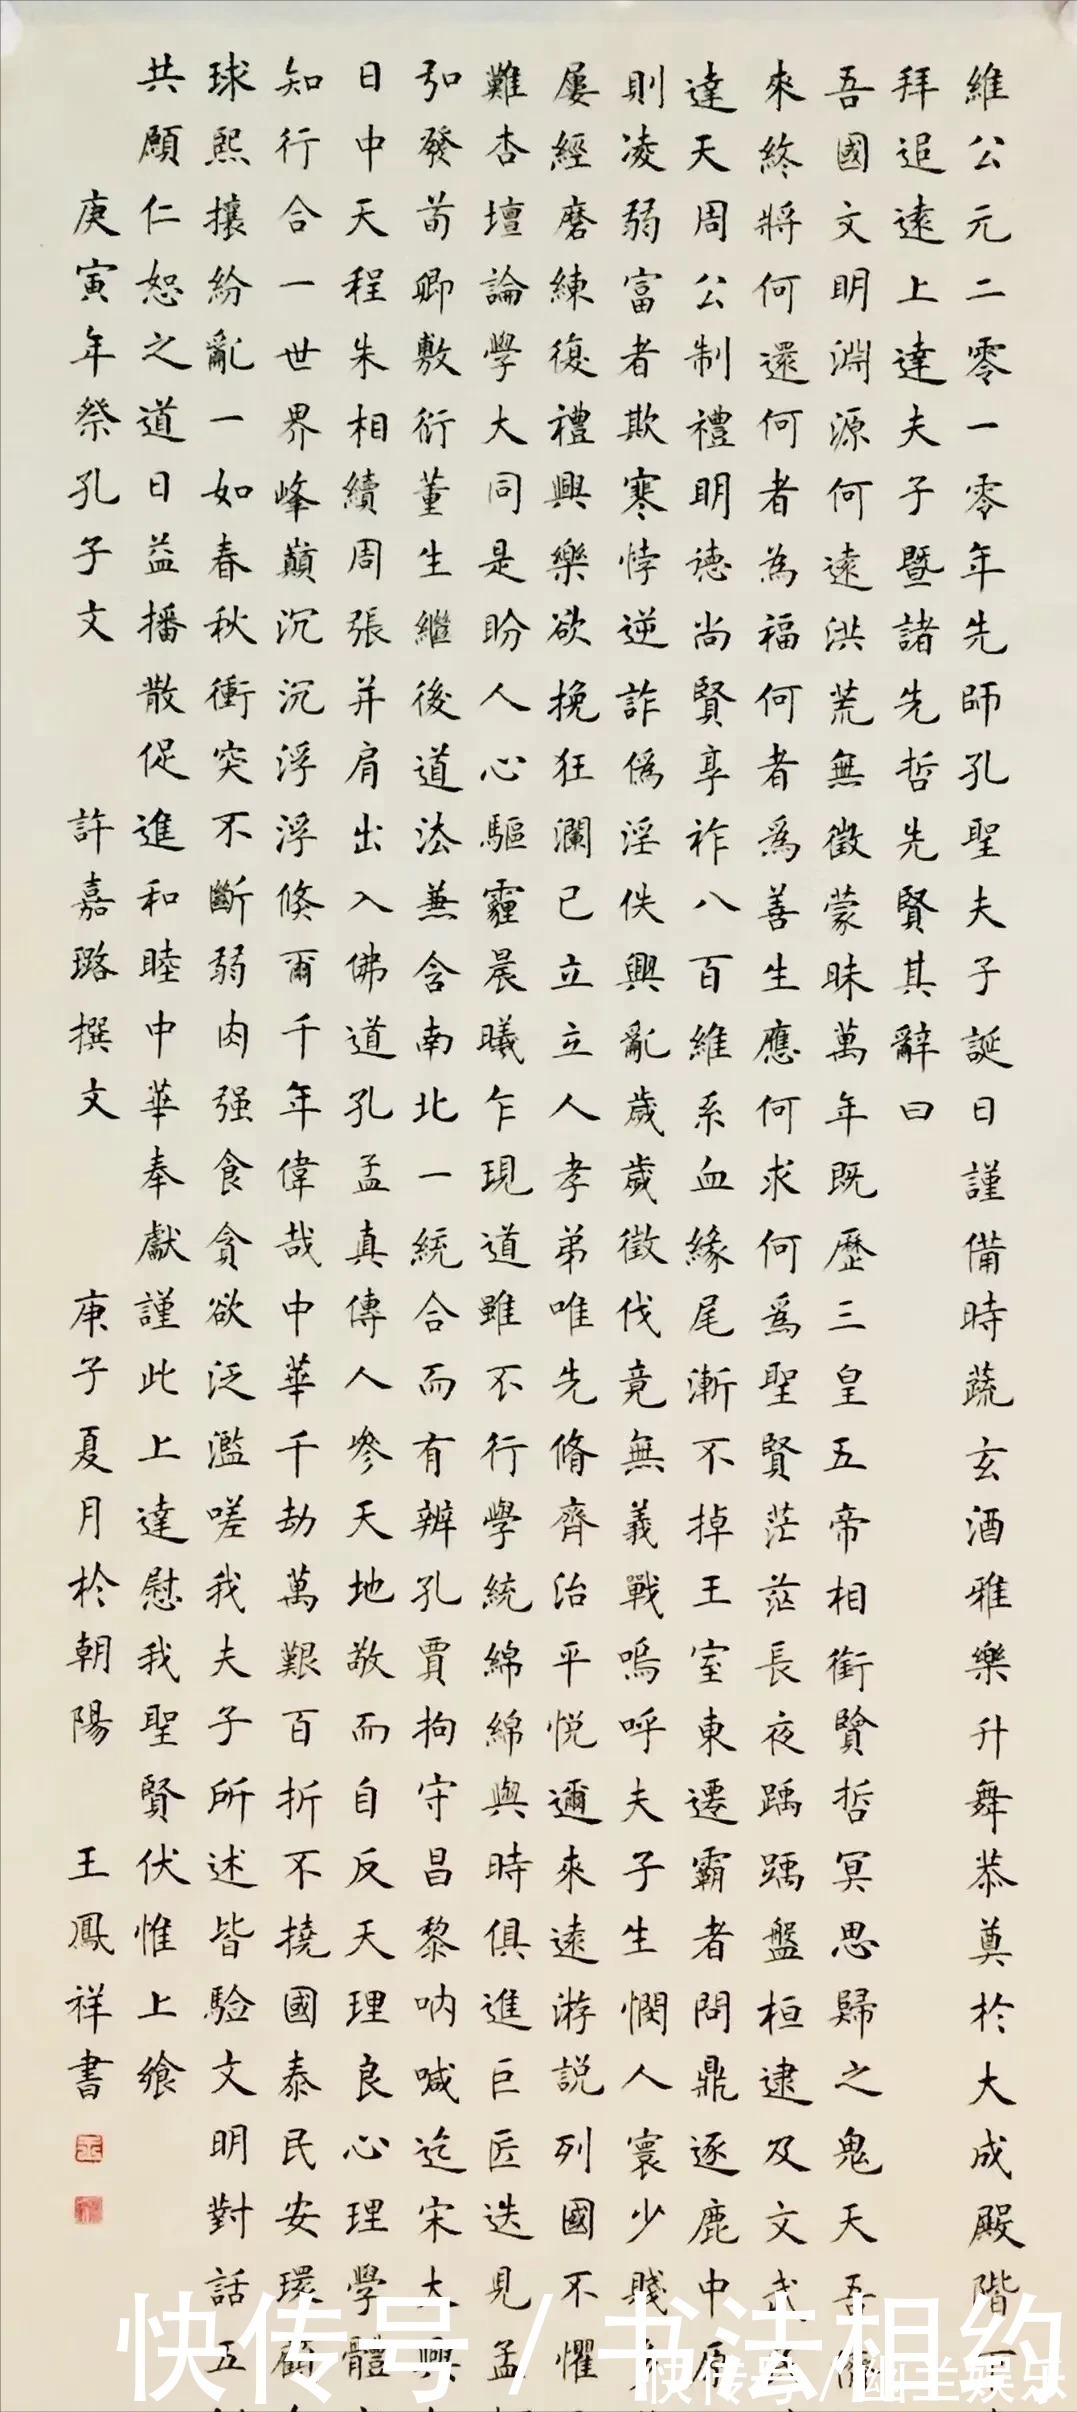 維公元二零一零年先師孔聖夫子誕日謹備時蔬玄酒雅樂升舞恭奠於大成殿階
拜追遠上達夫子暨諸先哲先賢其辭曰
吾國文明淵源何遠洪荒無徵蒙昧萬年既歷三皇五帝相銜賢哲冥思歸之鬼天吾儕
來終將何還何者為福何者爲善生應何求何爲聖賢茫茫長夜踽踽盤桓逮及文武
達天周公制禮明德尚賢享祚八百維系血緣尾漸不掉王室東遷霸者問鼎逐鹿中原
則凌弱富者欺寒悖逆詐僞淫佚興亂歲歲徵伐竟無義戰嗚呼夫子生憫人寰少賤
屢經磨練復禮興樂欲挽狂瀾已立立人孝弟唯先脩齊治平悦邇來遠游説列國不懼
難杏壇論學大同是盼人心驅霾晨曦乍現道雖不行學統綿綿與時俱進巨匠迭見孟
弘發荀卿敷衍董生繼後道法兼含南北一統合而有辨孔賈拘守昌黎吶喊迄宋大興
日中天程朱相續周張并肩出入佛道孔孟真傳人參天地敬而自反天理良心理學體
知行合一世界峰巔沉沉浮浮倏爾千年偉哉中華千劫萬艱百折不撓國泰民安環顧
球熙攘紛亂一如春秋衝突不斷弱肉强食貪欲泛濫嗟我夫子所述皆驗文明對話五
共願仁恕之道日益播散促進和睦中華奉獻謹此上達慰我聖賢伏惟上饗
庚寅年祭孔子文 許嘉璐撰文 庚子夏月於朝陽 王鳳祥書
快传号/书法相约
快传号/幽兰娱乐